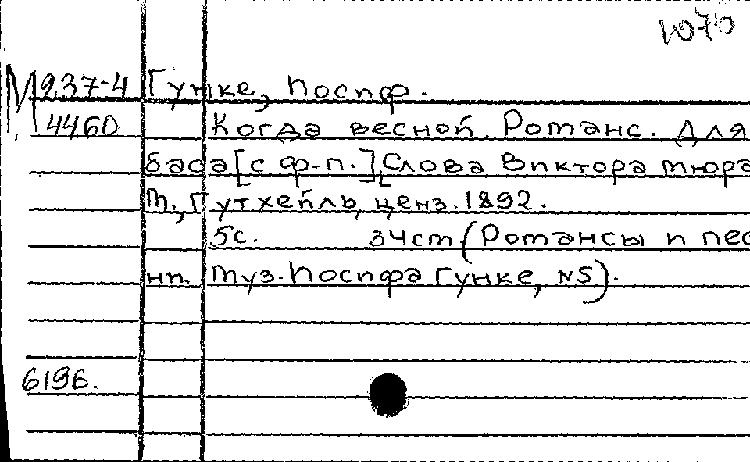 1070
М 237-4 Гунке, Иосиф.
4460 Когда весной. Романс. Для
баса [с ф-п.], Слова Виктора Мюра
М., Гутхейль, ценз. 1892.
5с. 34cm (Романсы и пес
ни. Муз. Иосифа Гунке, №5).
6196.